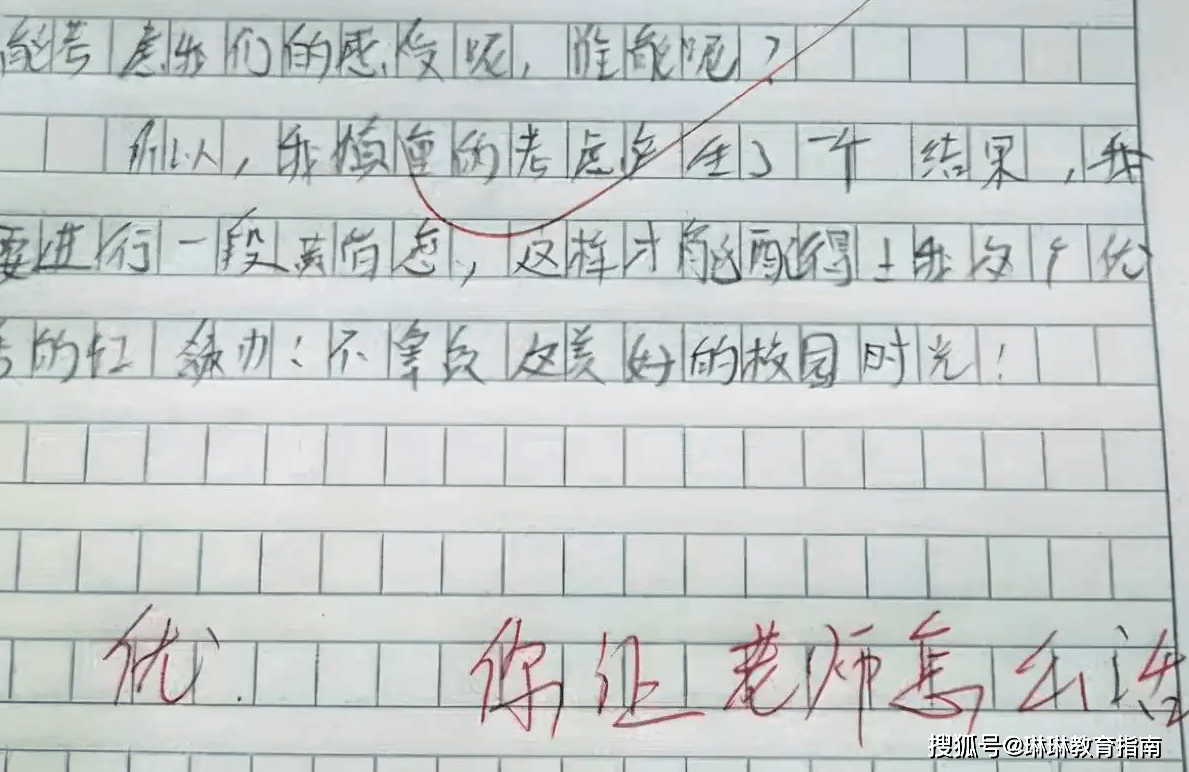 能考虑我们的感受呢,谁能呢?
所以,我慎重的考虑产生了一个结果,我
要进行一段黄昏恋,这样才能配得上我这个优
的红:不辜负这美好的校园时光!
优. 你让老师怎么活
搜狐号@琳琳教育指南